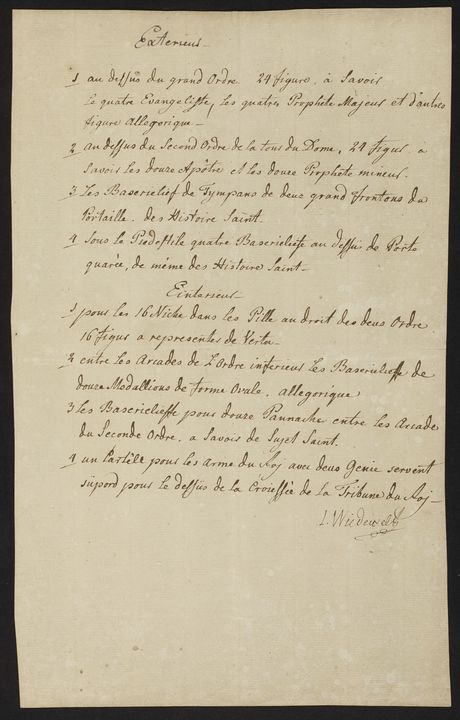 Exterieur
1 au dessus du grand Ordre 24 figure. à Savoir
le quatre Evangeliste, les quatres Prophete Majeur et d'autres
figure Allegorique
2 au dessus du Second Ordre de la tour du Dome, 24 figur a
savoir les douze Apôtre et les douze Prophete mineur.
3 Les Baserelief de Tympans de deux grand frontons du
Portaille. des Histoire Saint
4 Sous le Piedestile quatre Baserieliefe au dessus de Porte
quarée, de même des Histoire Saint
Einterieur
1 pour les 16 Niche dans les Pille au droit des deus Ordre
16 figur a representer de Vertu
2 entre les Arcades de L'Ordre inferieur les Baserielieffe de
douze Medallions de forme Ovale. allegorique
3 les Baserielieffe pour douze Pannache entre les Arcade
du Seconde Ordre, a Savoir de Sujet Saint.
4 un Cartele pour les Arme du Roj avec deus Genie servent
supord pour le dessus de la Croissée de la Tribune du Roj
J. Wiedewelt